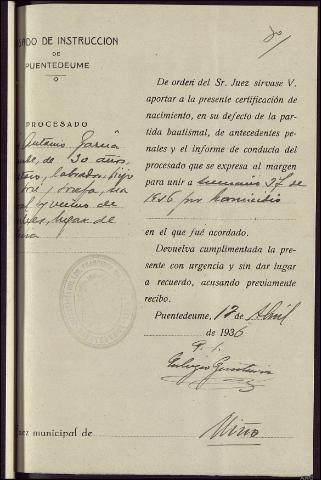 GADO DE INSTRUCCION
DE
PUENTEDEUME
PROCESADO
Antonio García
de 30 años,
labrador, hijo
José y Josefa, na
y vecino de
lugar de
De orden del Sr. Juez sirvase V.
aportar a la presente certificación de
nacimiento, en su defecto de la par-
tida bautismal, de antecedentes pe-
nales y el informe de conducta del
procesado que se expresa al margen
para unir a sumario 37 de
1936 por homicidio
en el que fué acordado.
Devuelva cumplimentada la pre-
sente con urgencia y sin dar lugar
a recuerdo, acusando previamente
recibo.
Puentedeume, 12 de Abril
de 1936
ez municipal de Miño